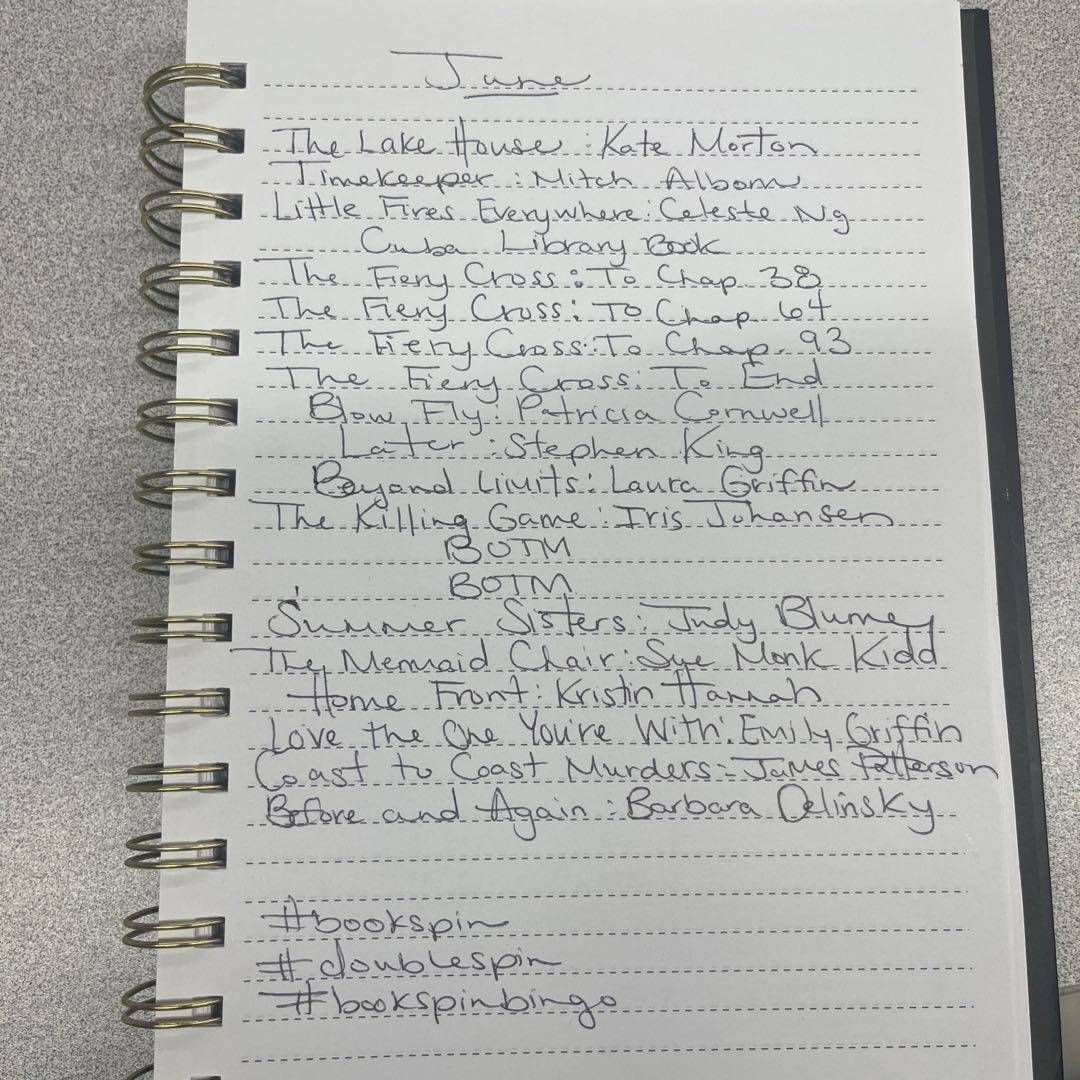 June
The Lake House : Kate Morton
Timekeeper : Mitch Albom
Little Fires Everywhere : Celeste Ng
Cuba Library Book
The Fiery Cross : To Chap 38
The Fiery Cross : To Chap 64
The Fiery Cross : To Chap. 93
The Fiery Cross : To End
Blow Fly : Patricia Cornwell
Later : Stephen King
Beyond Limits : Laura Griffin
The Killing Game : Iris Johansen
BOTM
BOTM
Summer Sisters : Judy Blume
The Mermaid Chair : Sue Monk Kidd
Home Front : Kristin Hannah
Love the One You're With : Emily Griffin
Coast to Coast Murders : James Patterson
Before and Again : Barbara Delinsky
#bookspin
#doublespin
#bookspinbingo